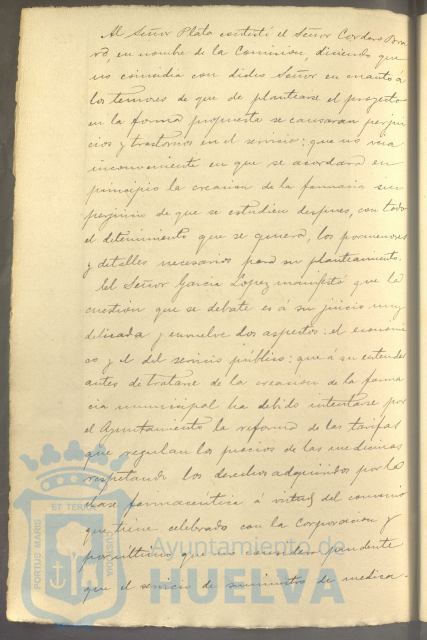 Al Señor Plata contestó el Señor Cordero Bora
ro, en nombre de la Comision, diciendo que
no coincidia con dicho Señor en cuanto a
los temores de que de plantearse el proyecto
en la forma propuesta se causaran perjui
cios y trastornos en el servicio: que no veia
inconveniente en que se acordara en
principio la creacion de la farmacia sin
perjuicio de que se estudien despues, con todo
el detenimiento que se quiera, los pormenores
y detalles necesarios para su planteamiento.
El Señor Garcia Lopez manifestó que la
cuestion que se debate es á su juicio muy
delicada y envuelve dos aspectos: el economi
co y el del servicio público: que á su entender
antes de tratarse de la creacion de la farma
cia municipal ha debido intentarse por
el Ayuntamiento la reforma de las tarifas
que regulan los precios de las medicinas
respetando los derechos adquiridos por la
clase farmacéutica á virtud del convenio
que tiene celebrado con la Corporacion y
por último que no considera prudente
que el servicio de suministro de medica-
PORTUS MARIS ET TERRAE CUSTODIA
Ayuntamiento de
HUELVA